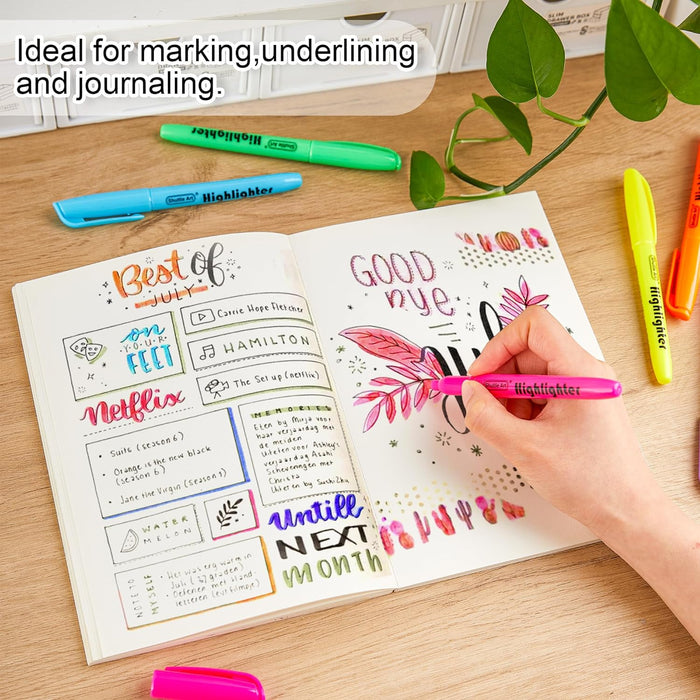 Ideal for marking,underlining
and journaling.
SLIM
DRAWER BOX
Highlighter
Shuttle Art
Shuttle Art
Highlighter
Best of
JULY
on
YOUR
FEET
Carrie Hope Fletcher
HAMILTON
The Set up (netflix)
Netflix
• Suits (season 6)
• Orange is the new black
(season 6)
• Jane the Virgin (Season 1)
MEMORIES
Eten by Mirja voor
haar verjaardag met
de meiden
Uiteten voor Ashley's
verjaardag Asahi
Scheveningen met
Christa
Uiteten by Sushi
WATER
MELON
NOTE TO
MYSELF
• Het was erg warm in
Juli ( graden)
• Oefenen met hand
letteren
Untill
NEXT
MONTH
GOOD
Bye
Highlighter
Highlighter